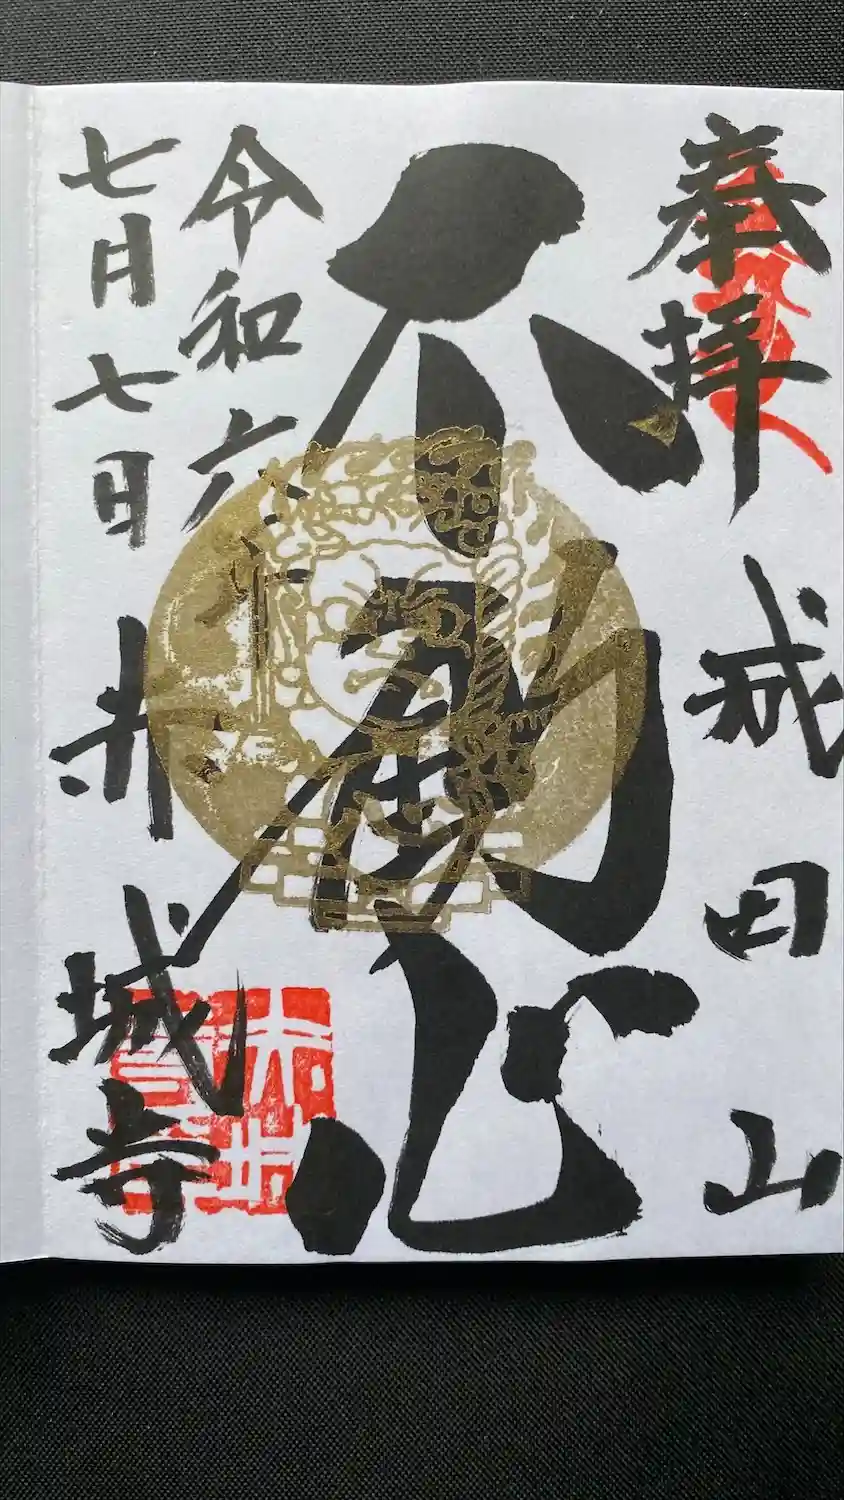 奉拝
成田山
不動心
令和六年
七月七日
赤城寺